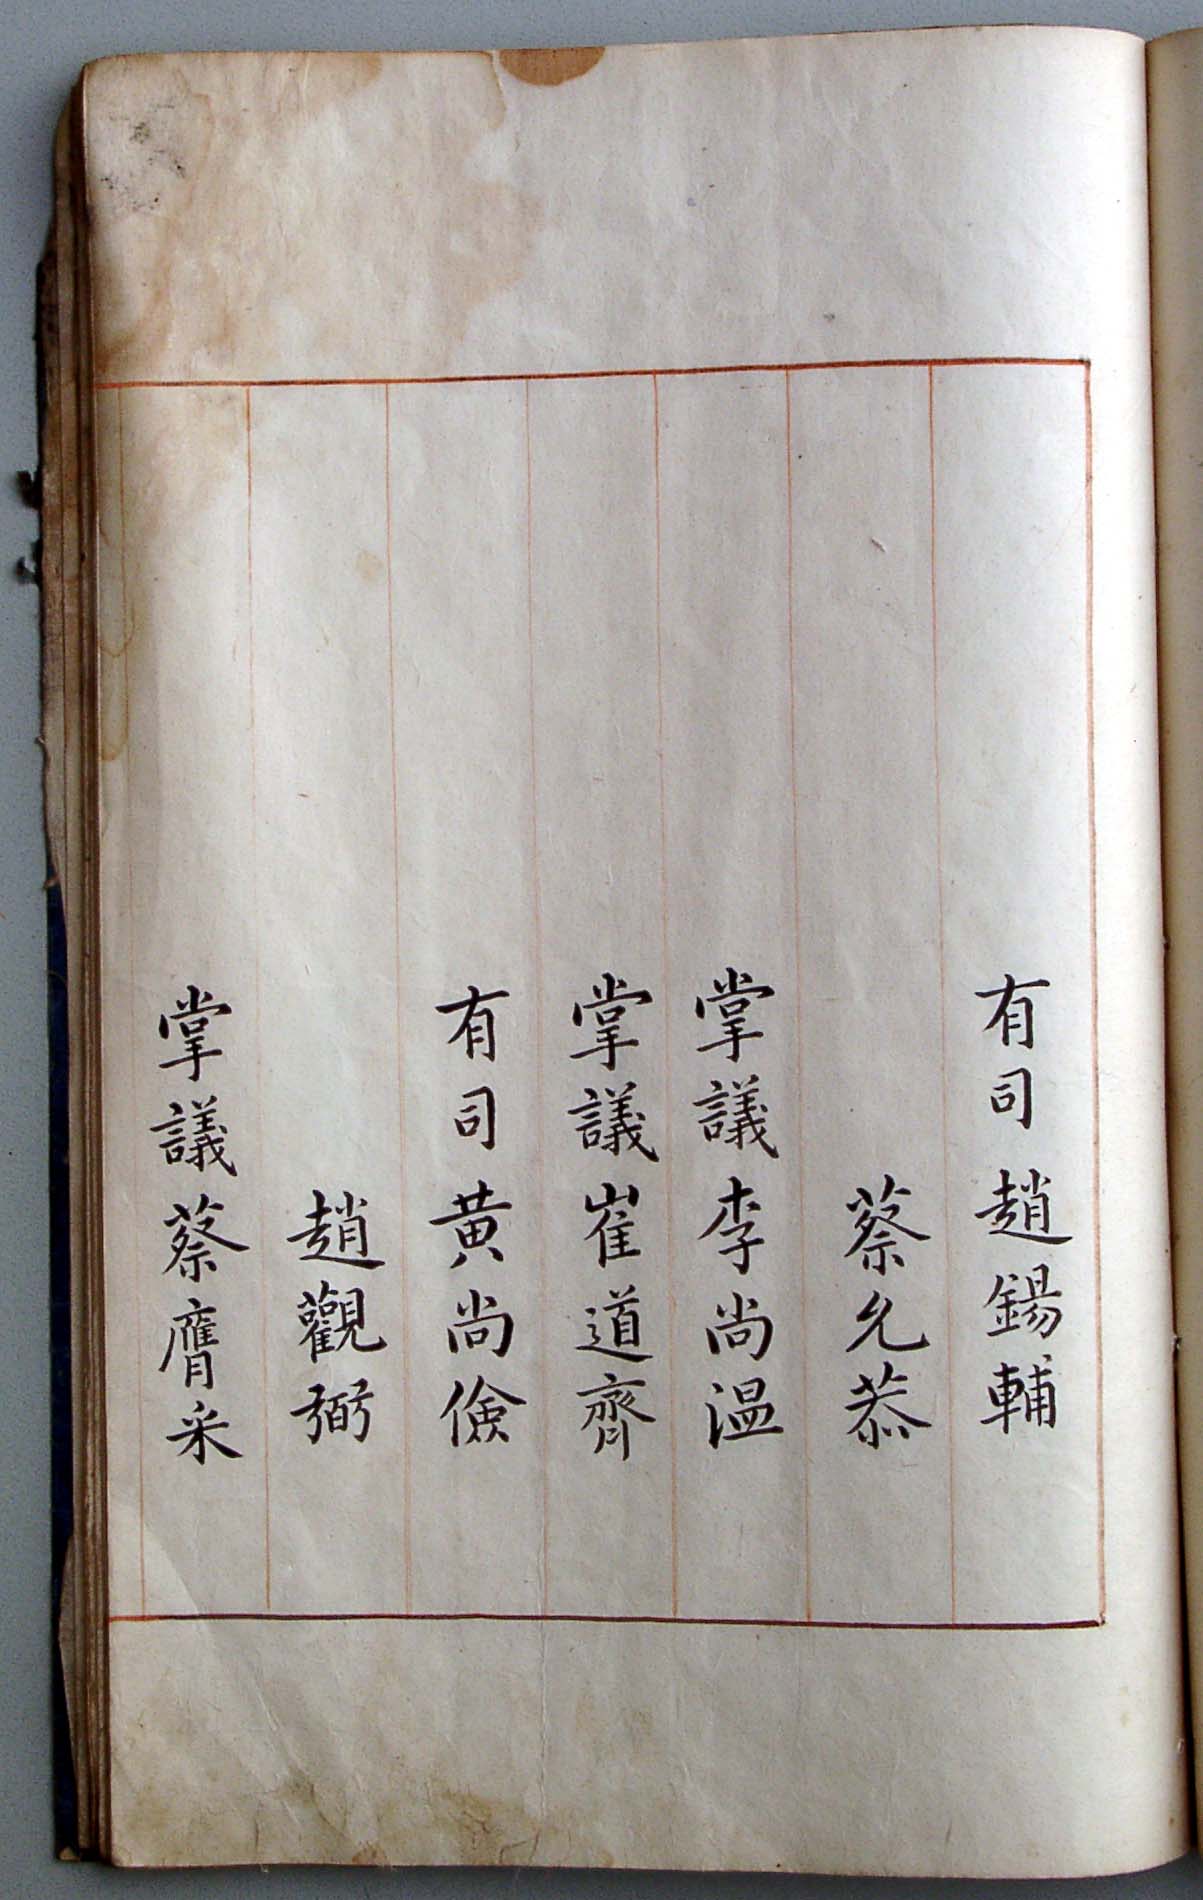 有司趙錫輔
蔡允恭
掌議李尚溫
掌議崔道齊
有司黃尚儉
趙觀弼
掌議蔡膺采